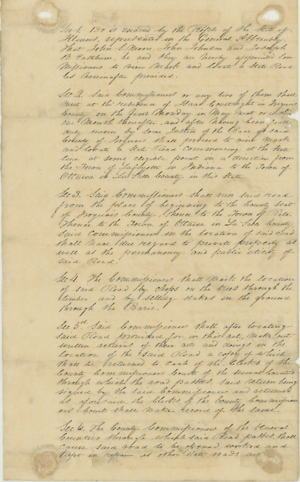 Sec 1. Be it enacted by the People of the State of
Illinois, represented in the General Assembly
That John S. Moore John Johnson and
be and they are hereby appointed Com
missioners to View Mark and locate a State Road
as hereinafter provided.
Sec 2. Said Commissioners or any two of them shall
meet at the residence of in Iroquois
County on the first Monday in May next or within
Months thereafter and after being
sworn by some Justice of the Peace of said
County of Iroquois shall proceed to and mark
and locate a State Road Commencing at the State
line at some eligible point in a direction from
the Town of in Indiana to the Town of
Ottawa in La Salle County in this State.
Sec 3. Said Commissioners shall run said road
from the place of beginning to the County Seat
of Iroquois County, thence to the Town of
thence to the Town of Ottawa in La Salle County
Said Commissioners in the location of said Road
shall have due regard to private property as
well as the permanency and public utility of
said Road.
Sec 4. The Commissioners shall mark the location
of said Road by chops on the trees through the
timber and by setting stakes in the ground
through the Prairie.
Sec 5th Said Commissioners shall after locating
said Road provided for in this act, make out
written of their acts and doings in the
location of the said Road a copy of which
shall be returned to each of the Clerks of the
County Commissioners Courts of the several Counties
through which the road passes, said return being
signed by the said Commissioners and returned
as aforesaid the Clerks of the County Commission
ers Court shall make record of the same.
Sec 6. The County Commissioners of the several
Counties through which said road passes shall
cause said road to be opened worked and
kept in repair as other State roads are